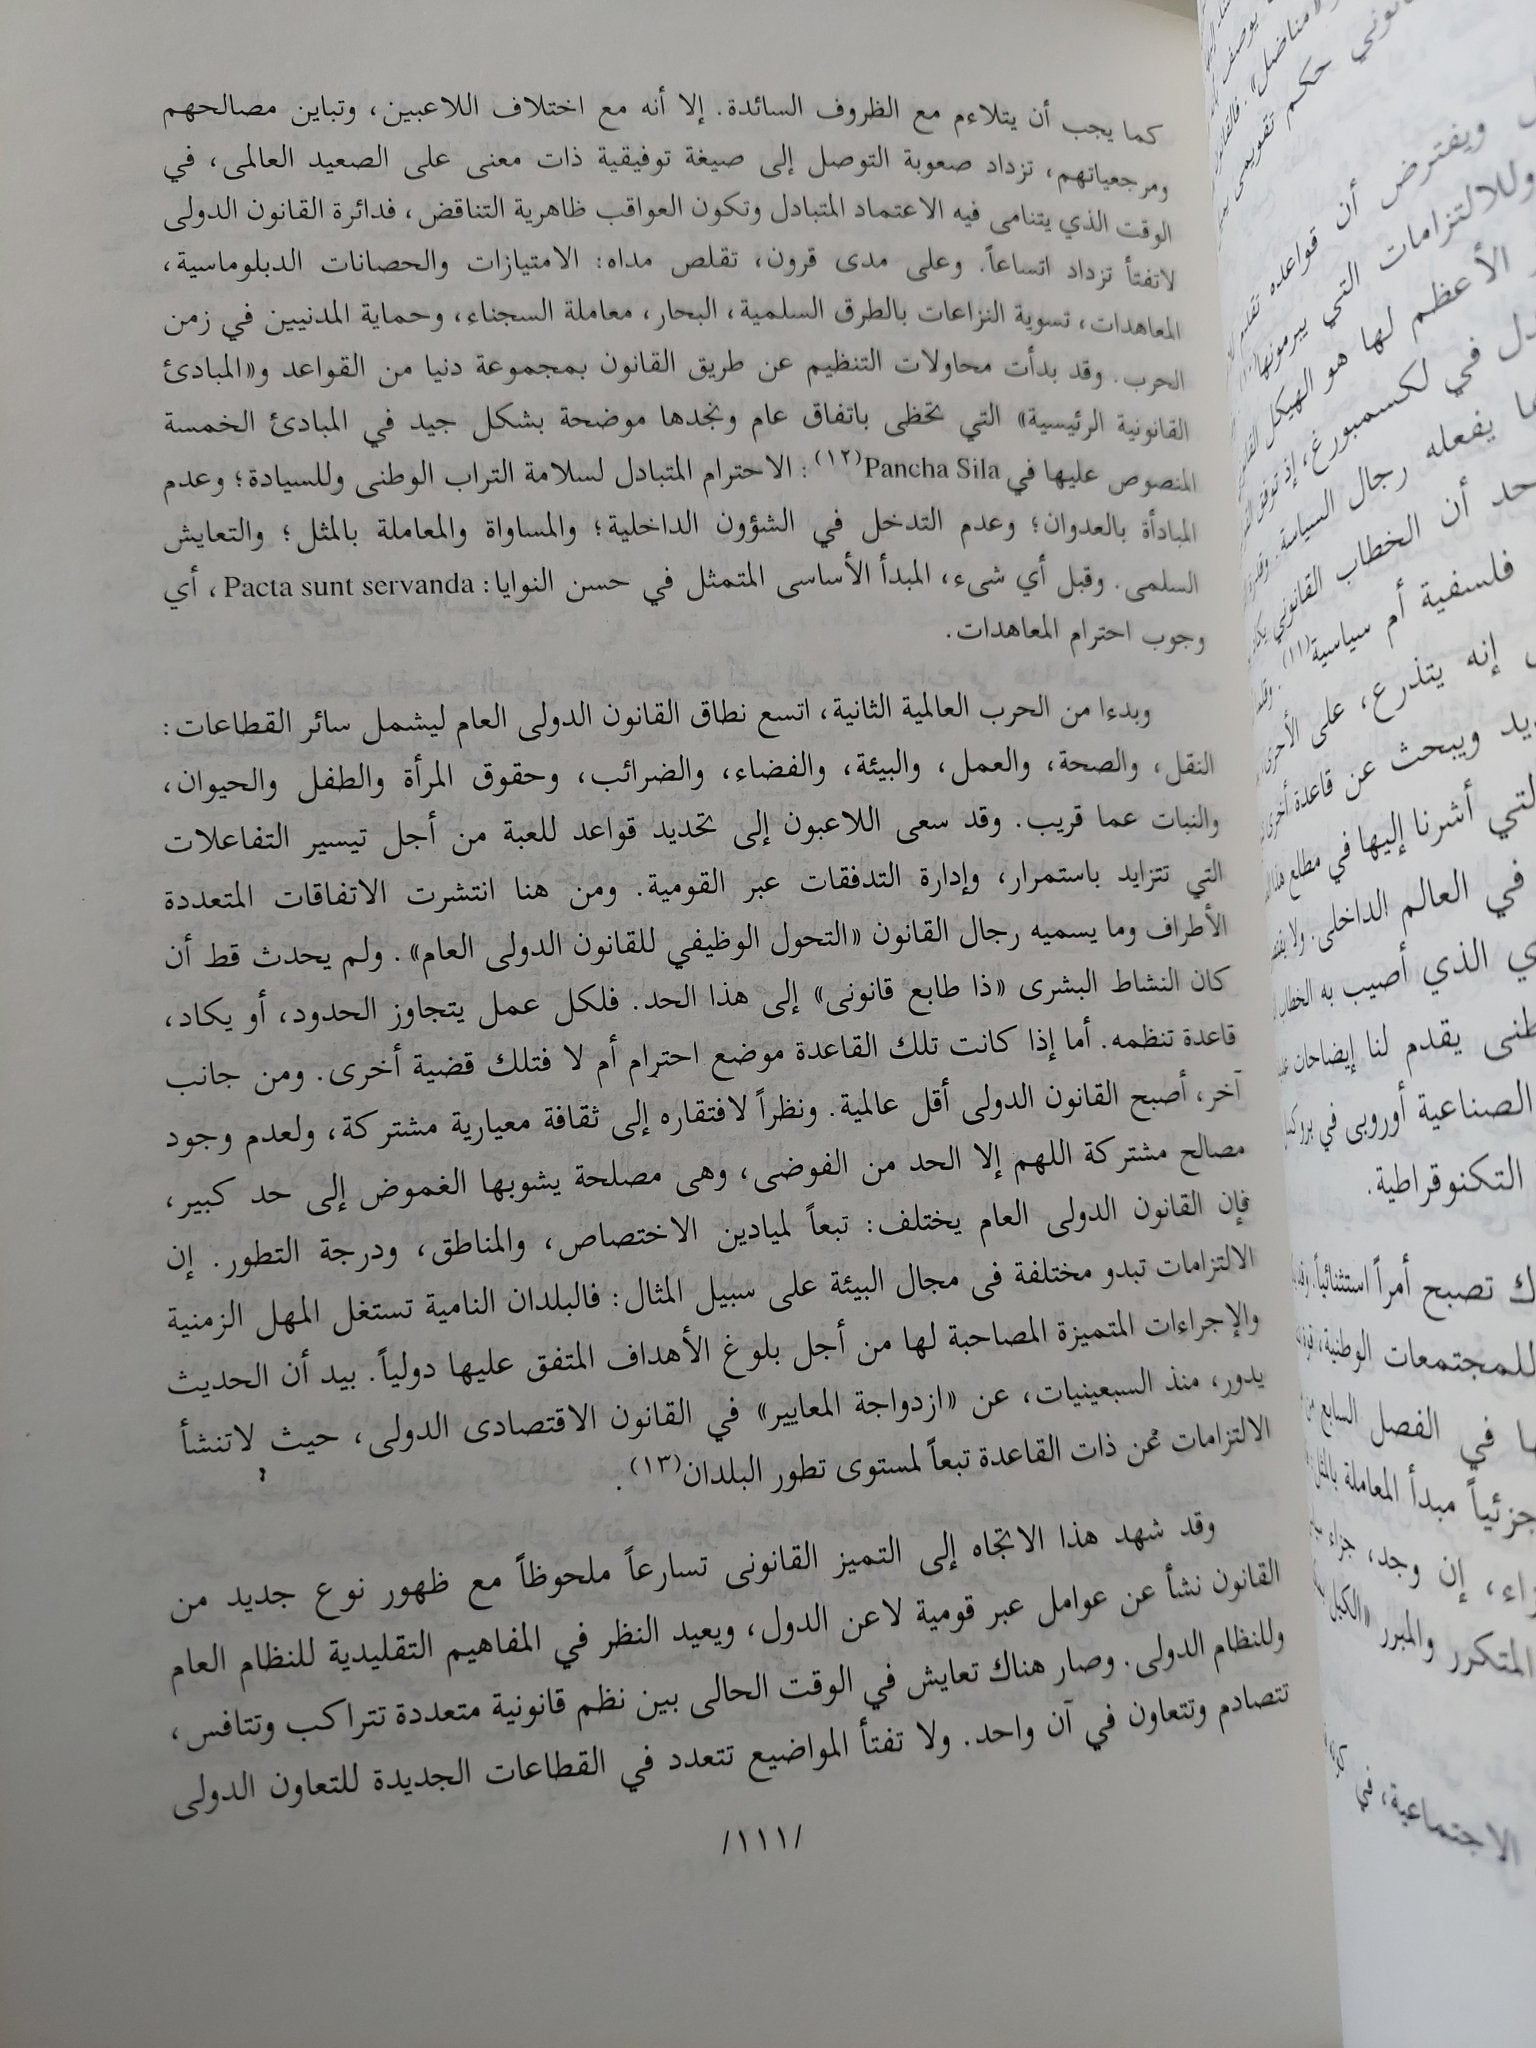 كما يجب أن يتلاءم مع الظروف السائدة. إلا أنه مع اختلاف اللاعبين، وتباين مصالحهم
ومرجعياتهم، تزداد صعوبة التوصل إلى صيغة توفيقية ذات معنى على الصعيد العالمى، في
الوقت الذي يتنامى فيه الاعتماد المتبادل وتكون العواقب ظاهرية التناقض، فدائرة القانون الدولى
لاتفتأ تزداد اتساعاً. وعلى مدى قرون، تقلص مداه: الامتيازات والحصانات الدبلوماسية،
المعاهدات، تسوية النزاعات بالطرق السلمية، البحار، معاملة السجناء، وحماية المدنيين في زمن
الحرب. وقد بدأت محاولات التنظيم عن طريق القانون بمجموعة دنيا من القواعد و«المبادئ
القانونية الرئيسية» التي تحظى باتفاق عام ونجدها موضحة بشكل جيد في المبادئ الخمسة
المنصوص عليها في Pancha Sila(١٢): الاحترام المتبادل لسلامة التراب الوطنى وللسيادة؛ وعدم
المبادأة بالعدوان؛ وعدم التدخل في الشؤون الداخلية؛ والمساواة والمعاملة بالمثل؛ والتعايش
السلمى. وقبل أي شىء، المبدأ الأساسى المتمثل في حسن النوايا: Pacta sunt servanda، أي
وجوب احترام المعاهدات.
وبدءا من الحرب العالمية الثانية، اتسع نطاق القانون الدولى العام ليشمل سائر القطاعات:
النقل، والصحة، والعمل، والبيئة، والفضاء، والضرائب، وحقوق المرأة والطفل والحيوان،
والنبات عما قريب. وقد سعى اللاعبون إلى تحديد قواعد للعبة من أجل تيسير التفاعلات
التي تتزايد باستمرار، وإدارة التدفقات عبر القومية. ومن هنا انتشرت الاتفاقات المتعددة
الأطراف وما يسميه رجال القانون «التحول الوظيفي للقانون الدولى العام». ولم يحدث قط أن
كان النشاط البشرى «ذا طابع قانونى» إلى هذا الحد. فلكل عمل يتجاوز الحدود، أو يكاد،
قاعدة تنظمه. أما إذا كانت تلك القاعدة موضع احترام أم لا فتلك قضية أخرى. ومن جانب
آخر، أصبح القانون الدولى أقل عالمية. ونظراً لافتقاره إلى ثقافة معيارية مشتركة، ولعدم وجود
مصالح مشتركة اللهم إلا الحد من الفوضى، وهى مصلحة يشوبها الغموض إلى حد كبير،
فإن القانون الدولى العام يختلف: تبعاً لميادين الاختصاص، والمناطق، ودرجة التطور. إن
الالتزامات تبدو مختلفة فى مجال البيئة على سبيل المثال: فالبلدان النامية تستغل المهل الزمنية
والإجراءات المتميزة المصاحبة لها من أجل بلوغ الأهداف المتفق عليها دولياً. بيد أن الحديث
يدور، منذ السبعينيات، عن «ازدواجة المعايير» في القانون الاقتصادى الدولى، حيث لاتنشأ
الالتزامات عن ذات القاعدة تبعاً لمستوى تطور البلدان(١٣).
وقد شهد هذا الاتجاه إلى التميز القانونى تسارعاً ملحوظاً مع ظهور نوع جديد من
القانون نشأ عن عوامل عبر قومية لاعن الدول، ويعيد النظر في المفاهيم التقليدية للنظام العام
وللنظام الدولى. وصار هناك تعايش في الوقت الحالى بين نظم قانونية متعددة تتراكب وتتافس،
تتصادم وتتعاون في آن واحد. ولا تفتأ المواضيع تتعدد في القطاعات الجديدة للتعاون الدولى
/١١١/
ويفترض أن قواعده
وللالتزامات التي يبرمونها
الأعظم لها هو الهيكل
في لكسمبورغ، إذ
يفعله رجال السياسة.
أن الخطاب القانوني
فلسفية أم سياسية(١١).
إنه يتذرع، على
ويبحث عن قاعدة أخرى
التي أشرنا إليها في مطلع
في العالم الداخلى.
الذي أصيب به
يقدم لنا إيضاحات
الصناعية أوروبى في
التكنوقراطية.
تصبح أمراً استثنائياً.
للمجتمعات الوطنية،
في الفصل السابع
جزئياً مبدأ المعاملة
إن وجد، جزاء
المتكرر والمبرر
الاجتماعية، في